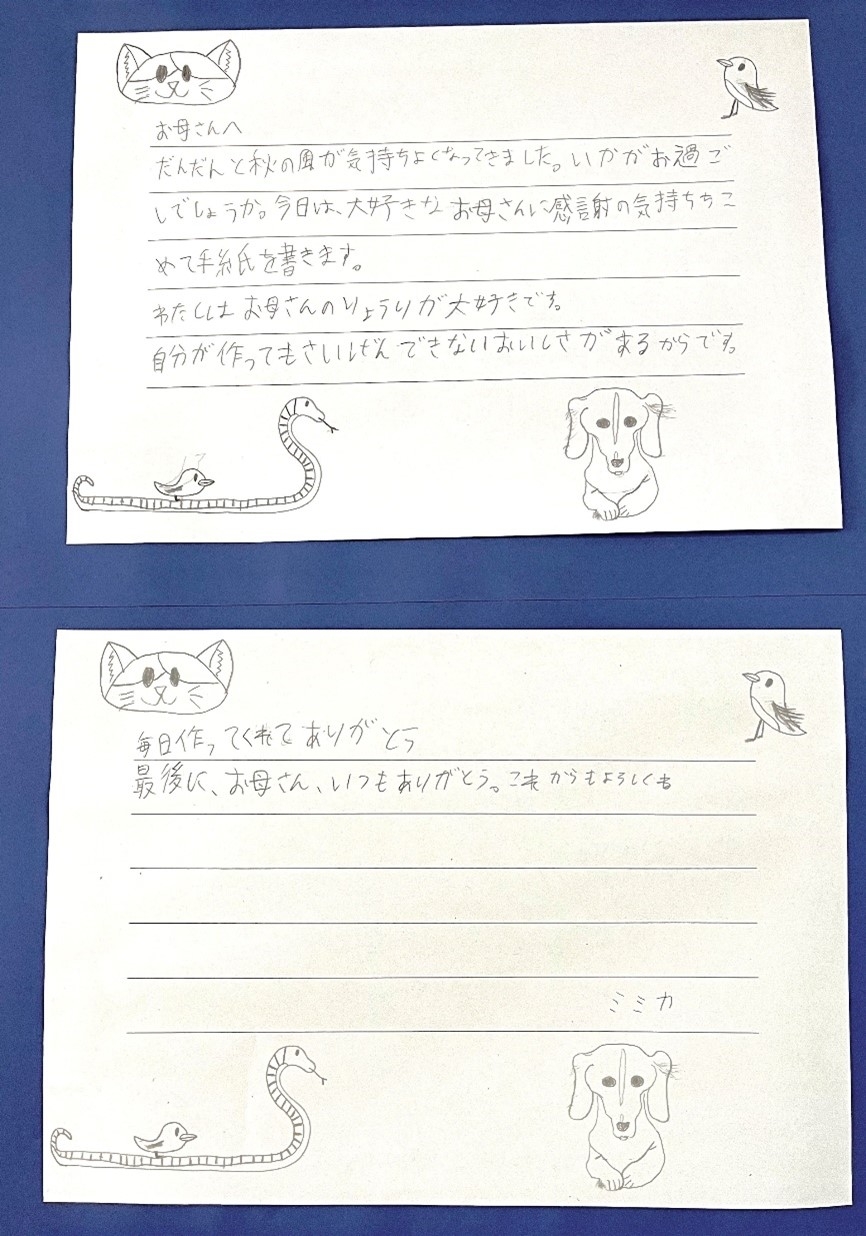 お母さんへ
だんだんと秋の風が気持ちよくなってきました。いかがお過ご
しでしょうか。今日は、大好きなお母さんに感謝の気持ちちこ
めて手紙を書きます。
わたしはお母さんのりょうりが大好きです。
自分が作ってもさいげんできないおいしさがあるからです。
毎日作ってくれてありがとう
最後に、お母さん、いつもありがとう。これからもよろしくも
ミミカ